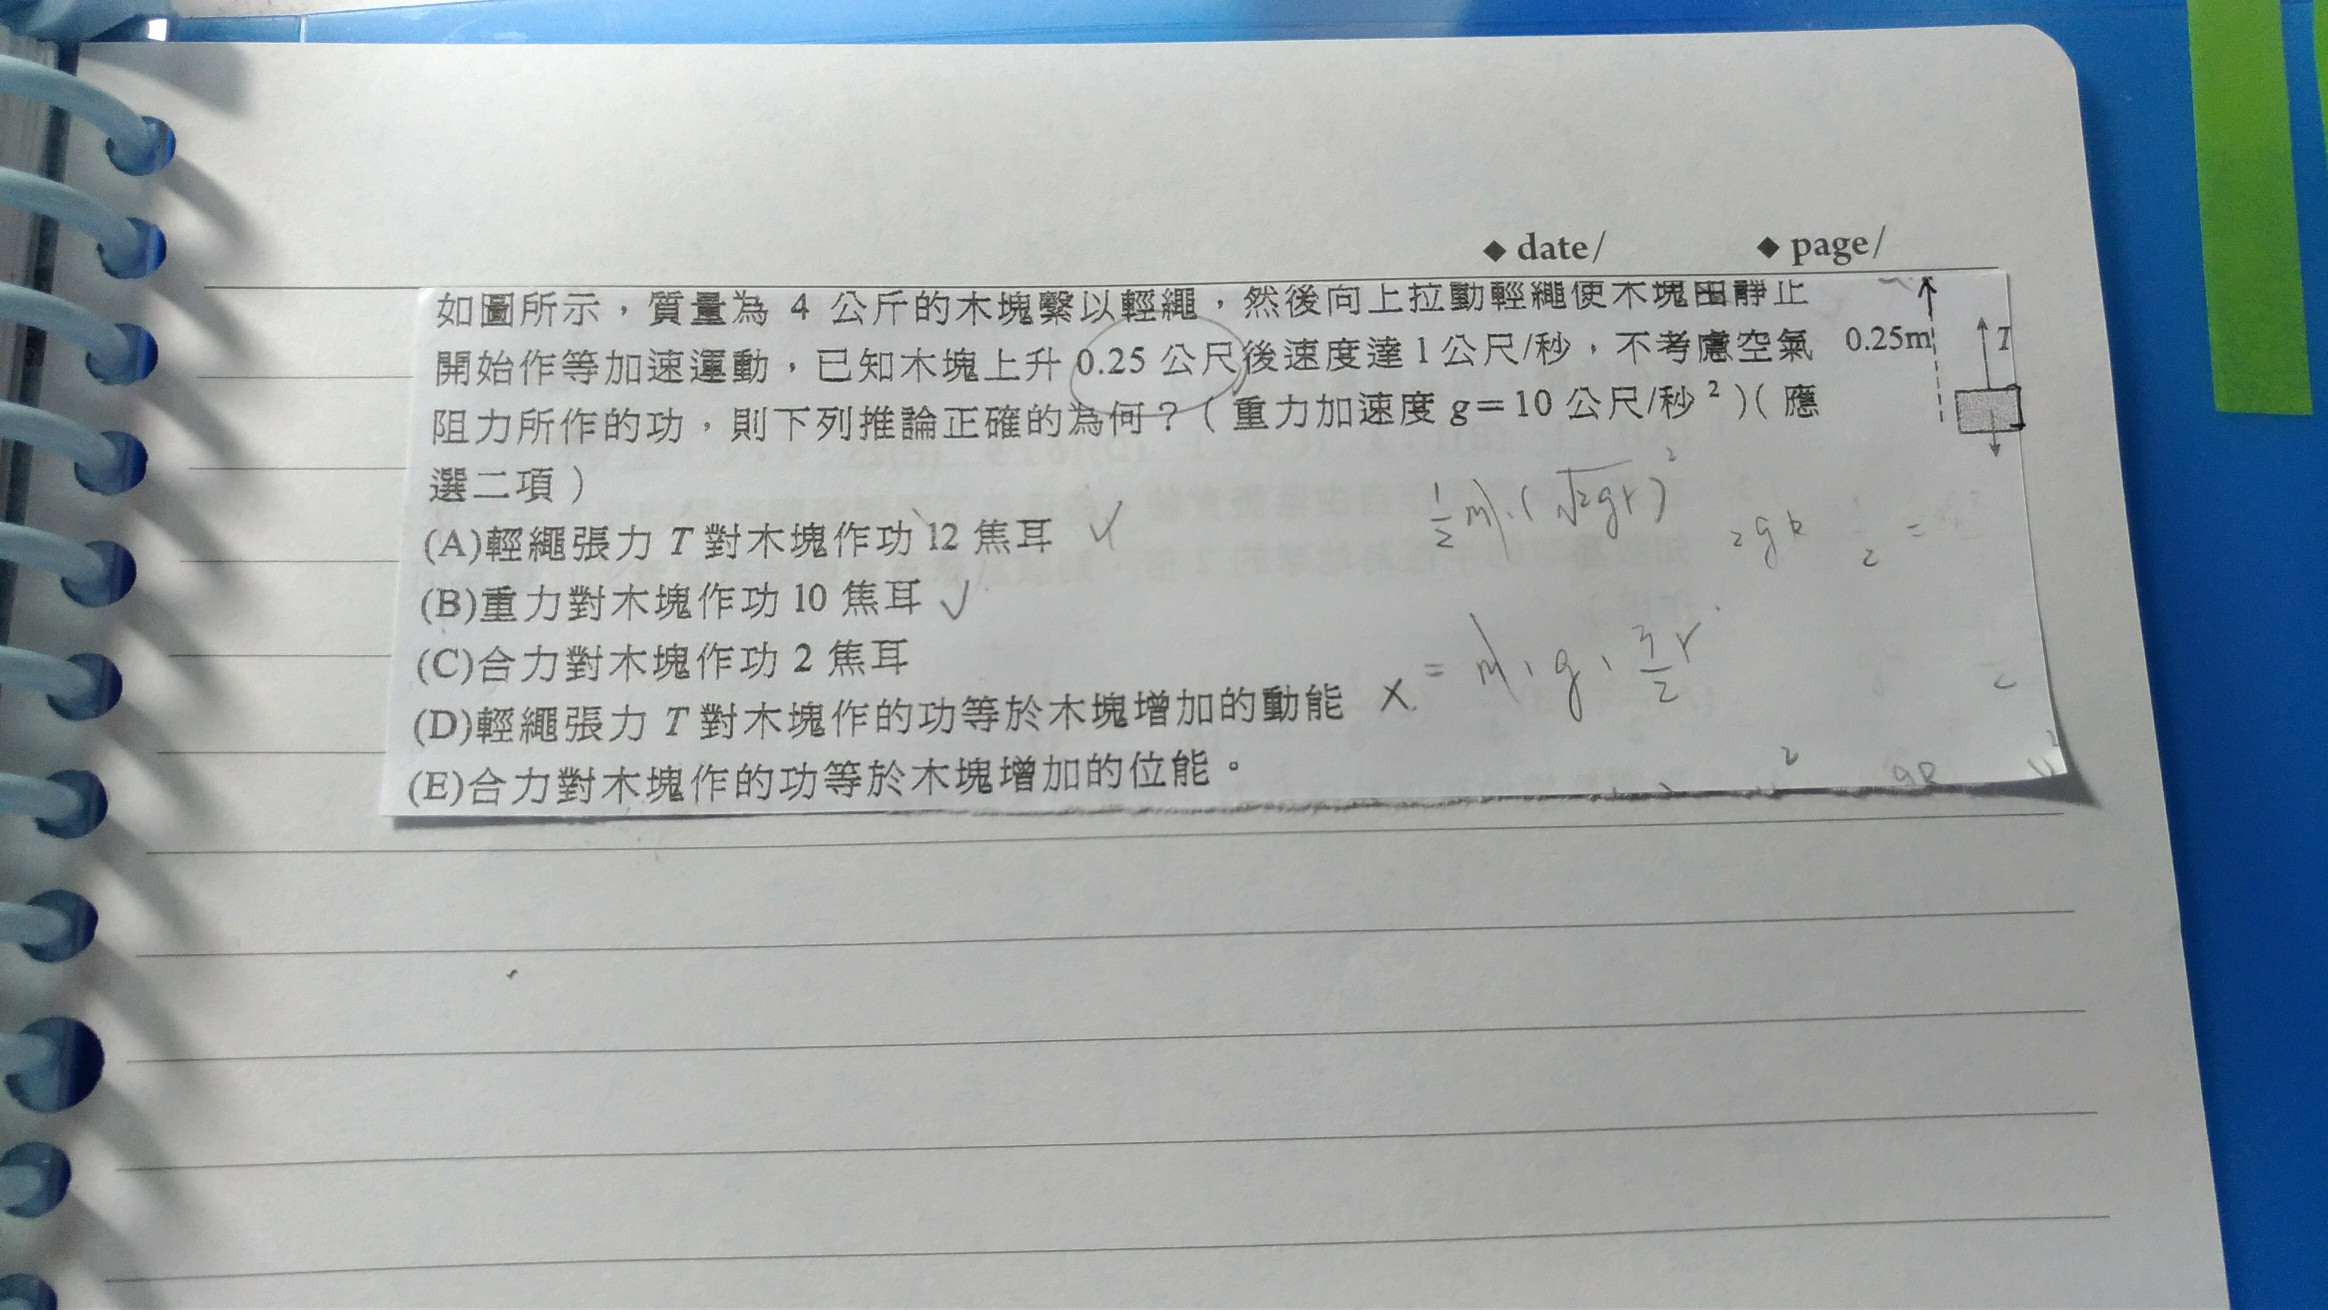 ◆ date/ ◆ page/
如圖所示，質量為 4 公斤的木塊繫以輕繩，然後向上拉動輕繩使木塊由靜止
開始作等加速運動，已知木塊上升 0.25 公尺後速度達 1 公尺/秒，不考慮空氣
阻力所作的功，則下列推論正確的為何？（重力加速度 g＝10 公尺/秒²）（應
選二項）
0.25m T
(A)輕繩張力 T 對木塊作功 12 焦耳 ✓
(B)重力對木塊作功 10 焦耳 ✓
(C)合力對木塊作功 2 焦耳
(D)輕繩張力 T 對木塊作的功等於木塊增加的動能 ×
(E)合力對木塊作的功等於木塊增加的位能。
½m·(√2gr)²
2gR
= m·g·3/2 r
2
gR